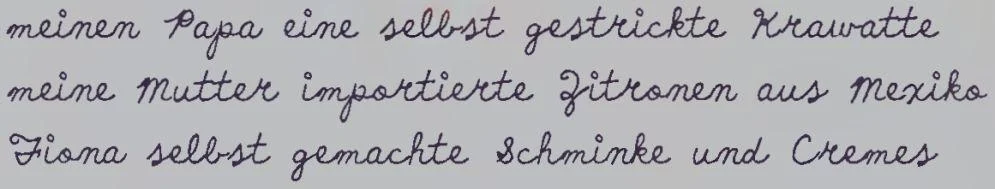 meinen Papa eine selbst gestrickte Krawatte
meine Mutter importierte Zitronen aus Mexiko
Fiona selbst gemachte Schminke und Cremes